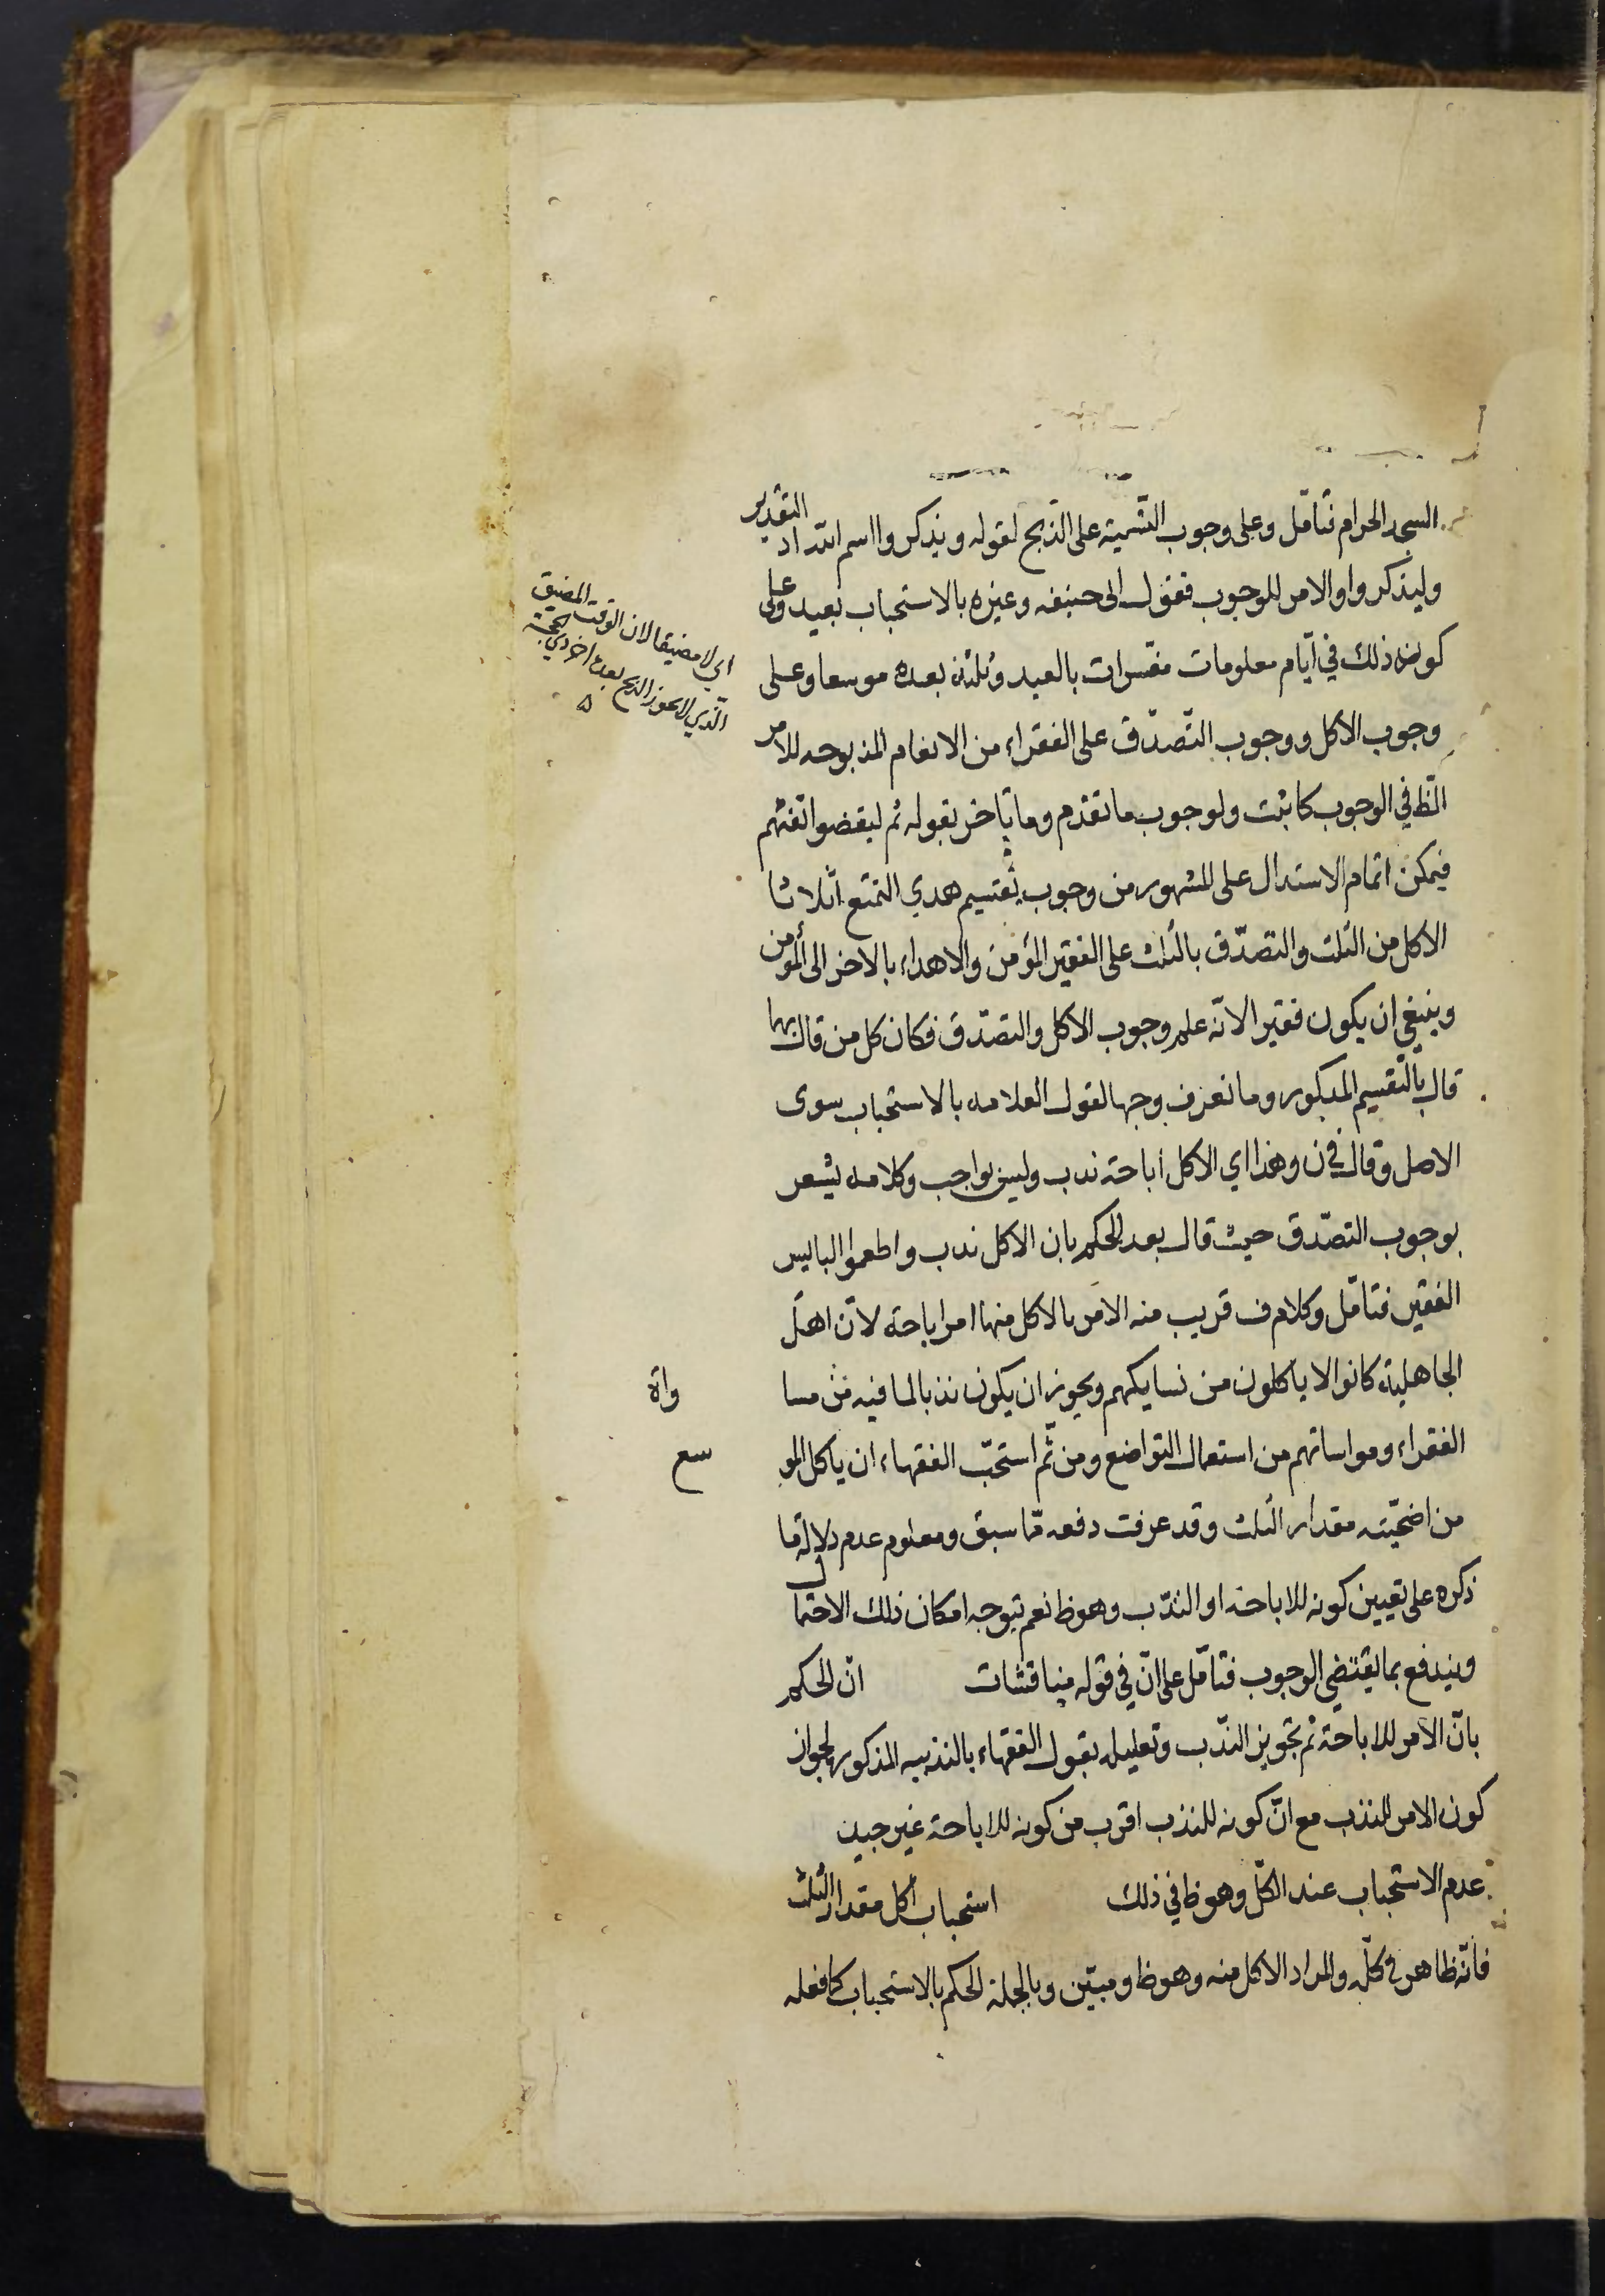 المسجد الحرام فتأمّل وعلى وجوب التّسمية على الذّبح لقوله ويذكروا اسم الله اذ التقدير
وليذكروا والامر للوجوب فقول ابى حنيفه وغيره بالاستحباب بعيد وعلى
كون ذلك في ايّام معلومات مفسّرات بالعيد وثلثه بعده موسعا وعلى
وجوب الاكل ووجوب التّصدّق على الفقراء من الانعام المذبوحه للامر
الظ في الوجوب كما ثبت ولوجوب ما تقدّم وما تأخر بقوله ثم ليقضوا تفثهم
فيمكن اتمام الاستدلال على المشهور من وجوب تقسيم هدي التمتع اثلاثا
الاكل من الثلث والتصدّق بالثلث على الفقير المؤمن والاهداء بالاخر الى المؤمن
وينبغي ان يكون فقيرا لانّه علم وجوب الاكل والتصدّق فكان كل من قال بهما
قال بالتّقسيم المذكور وما نعرف وجها لقول العلامه بالاستحباب سوى
الاصل وقال في ن وهذا اي الاكل أباحة ندب وليس بواجب وكلامه يشعر
بوجوب التصدّق حيث قال بعد الحكم بان الاكل ندب واطعموا البايس
الفقير فتأمّل وكلام ف قريب منه الامر بالاكل منها امر اباحة لانّ اهل
الجاهلية كانوا لا ياكلون من نسايكهم ويجوز ان يكون ندبا لما فيه من مسا واة
الفقراء ومواساتهم من استعمال التواضع ومن ثمّ استحبّ الفقهاء ان ياكل المو سع
من اضحيّته مقدار الثلث وقد عرفت دفعه ممّا سبق ومعلوم عدم دلالة ما
ذكره على تعيين كونه للاباحة او الندب وهو ظ نعم يتوجه امكان ذلك الاحتمال
ويندفع بما يقتضي الوجوب فتأمّل على انّ في قوله مناقشات انّ الحكم
بانّ الامر للاباحة ثم تجويز النّدب وتعليله بقول الفقهاء بالندبيه المذكور لجواز
كون الامر للندب مع انّ كونه للندب اقرب من كونه للاباحة غير جيد
عدم الاستحباب عند الكلّ وهو ظ في ذلك استحباب أكل مقدار الثلث
فانّه ظاهر في كلّه والمراد الاكل منه وهو ظ ومبيّن وبالجملة الحكم بالاستحباب كما فعله
اي لا مضيقا لان الوقت المضيق
الّذي لا يجوز الذبح بعده اخر ذي الحجة